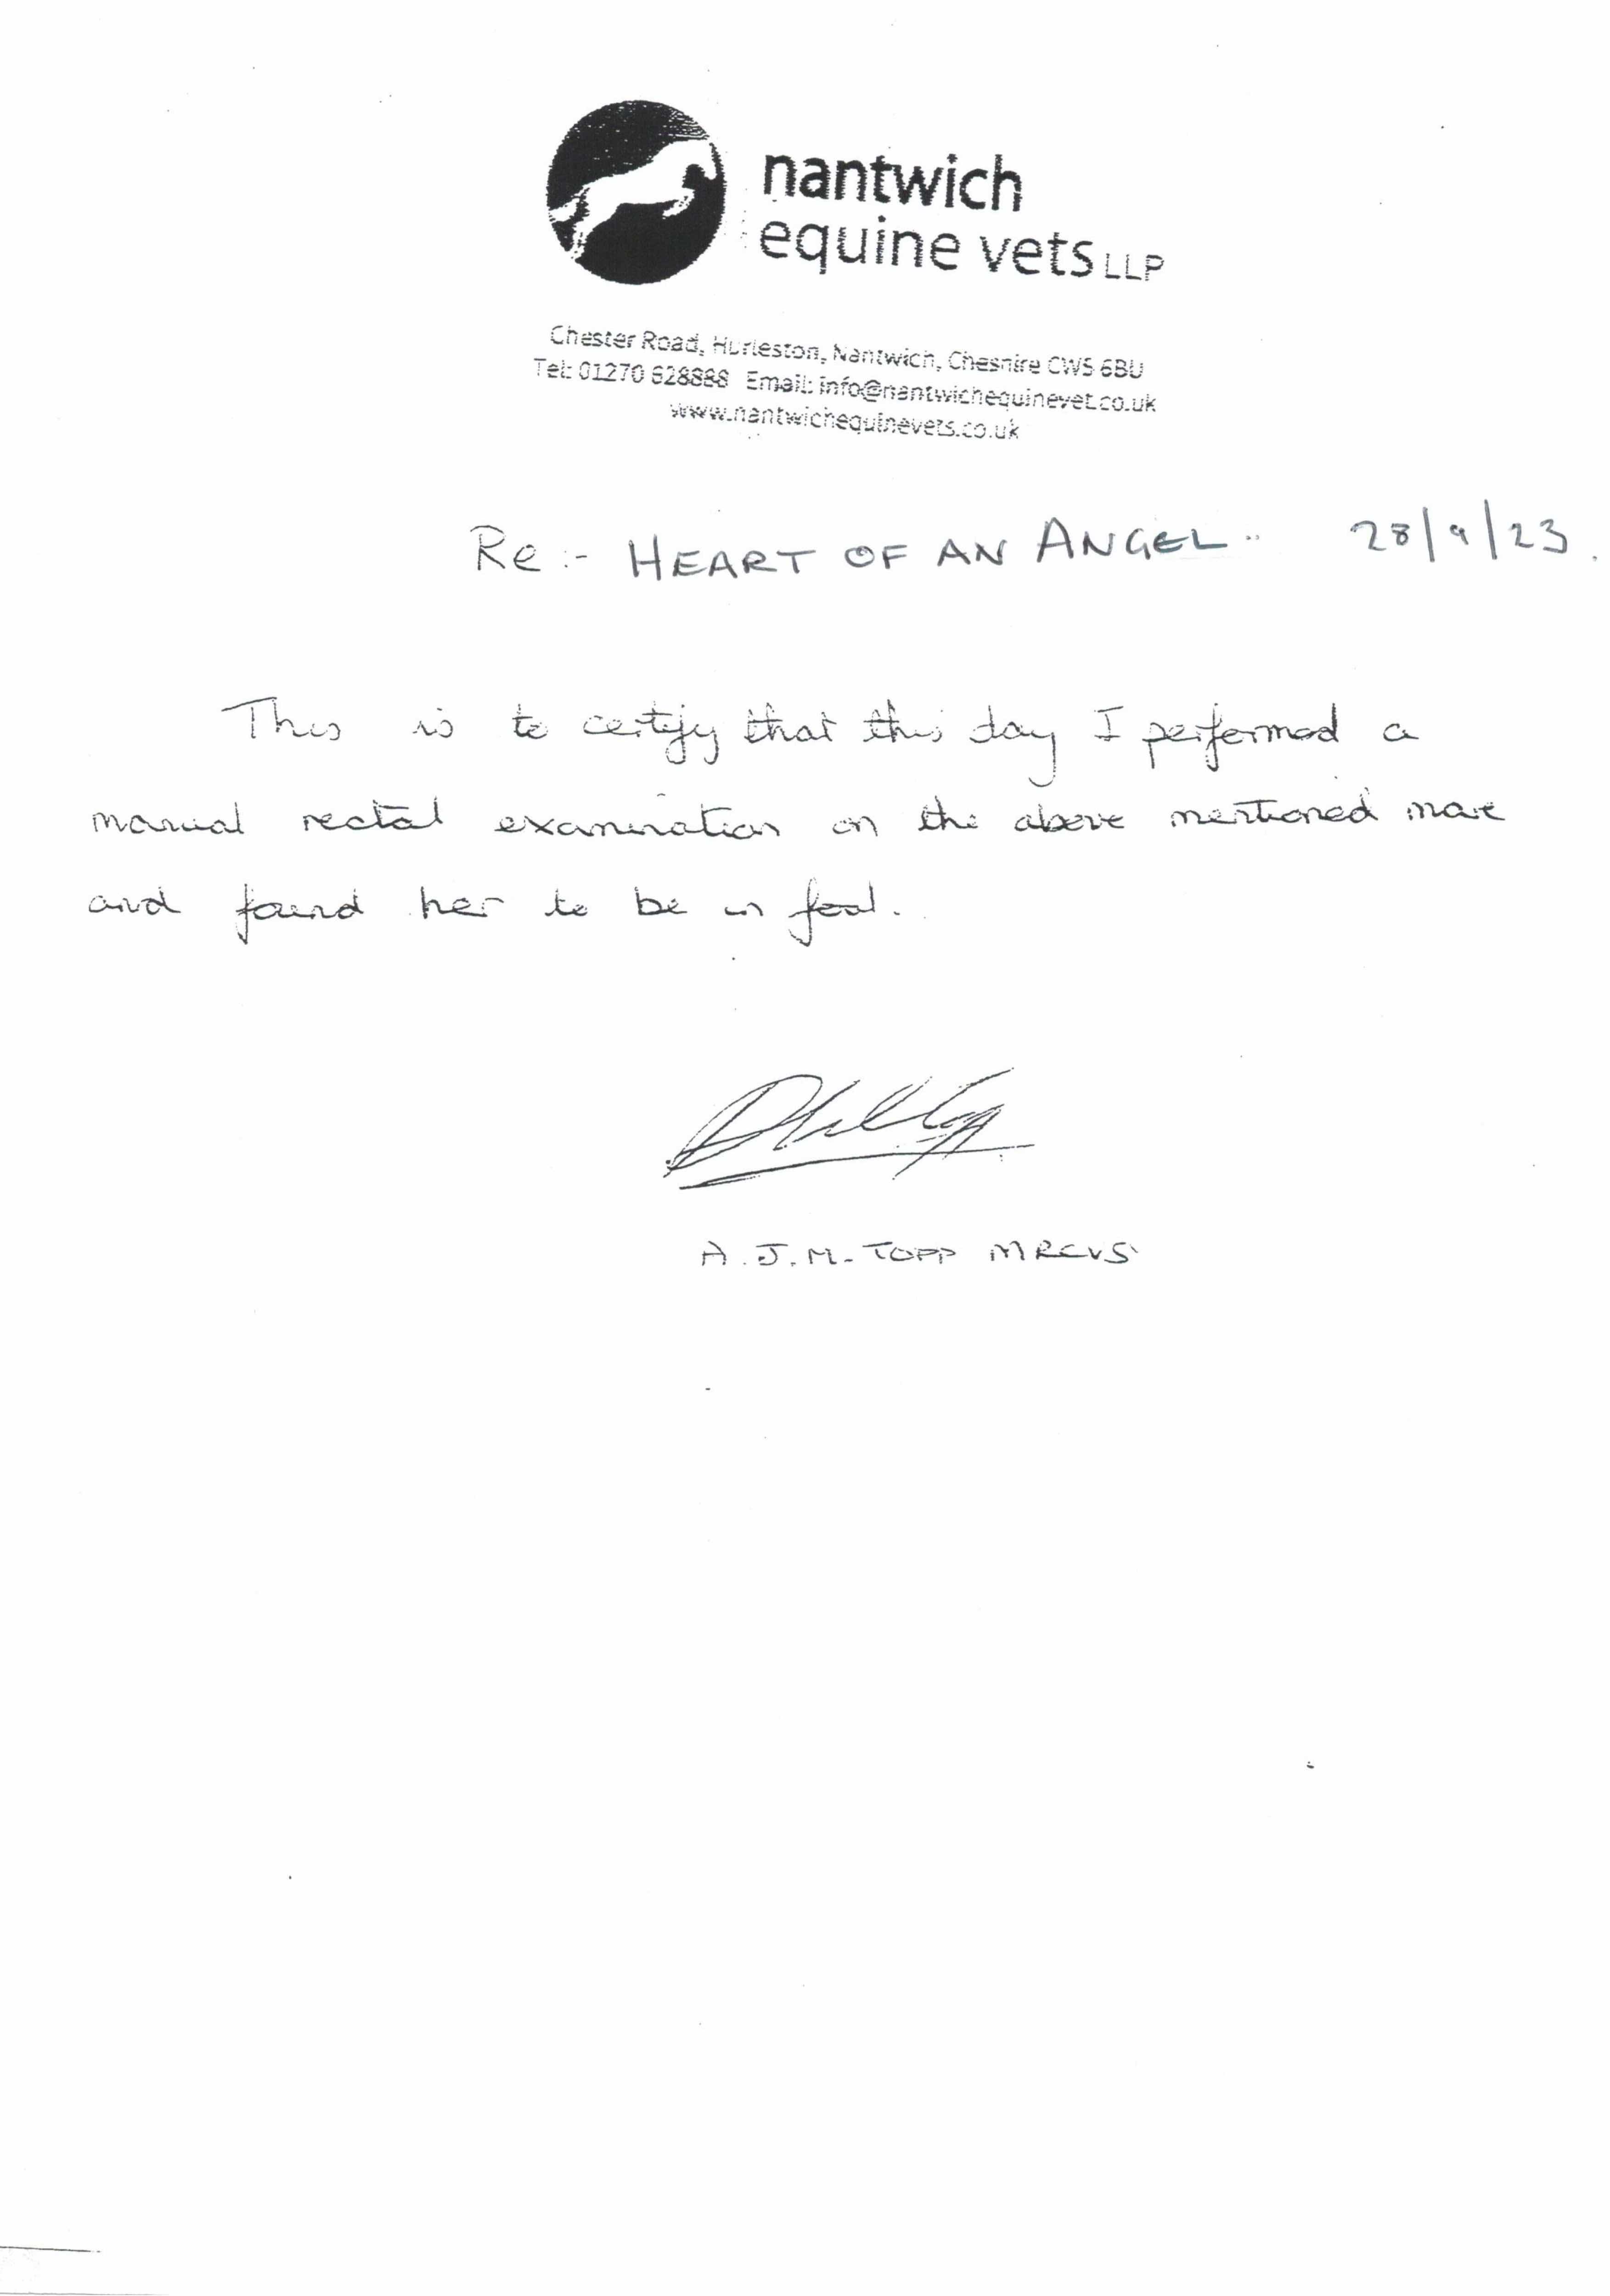 nantwich
equine vets LLP
Chester Road, Hurleston, Nantwich, Cheshire CW5 6BU
Tel: 01270 628888 Email: info@nantwichequinevet.co.uk
www.nantwichequinevets.co.uk
Re:- HEART OF AN ANGEL.. 28/9/23.
This is to certify that this day I performed a
manual rectal examination on the above mentioned mare
and found her to be in foal.
A.J.M. TOPP MRCVS